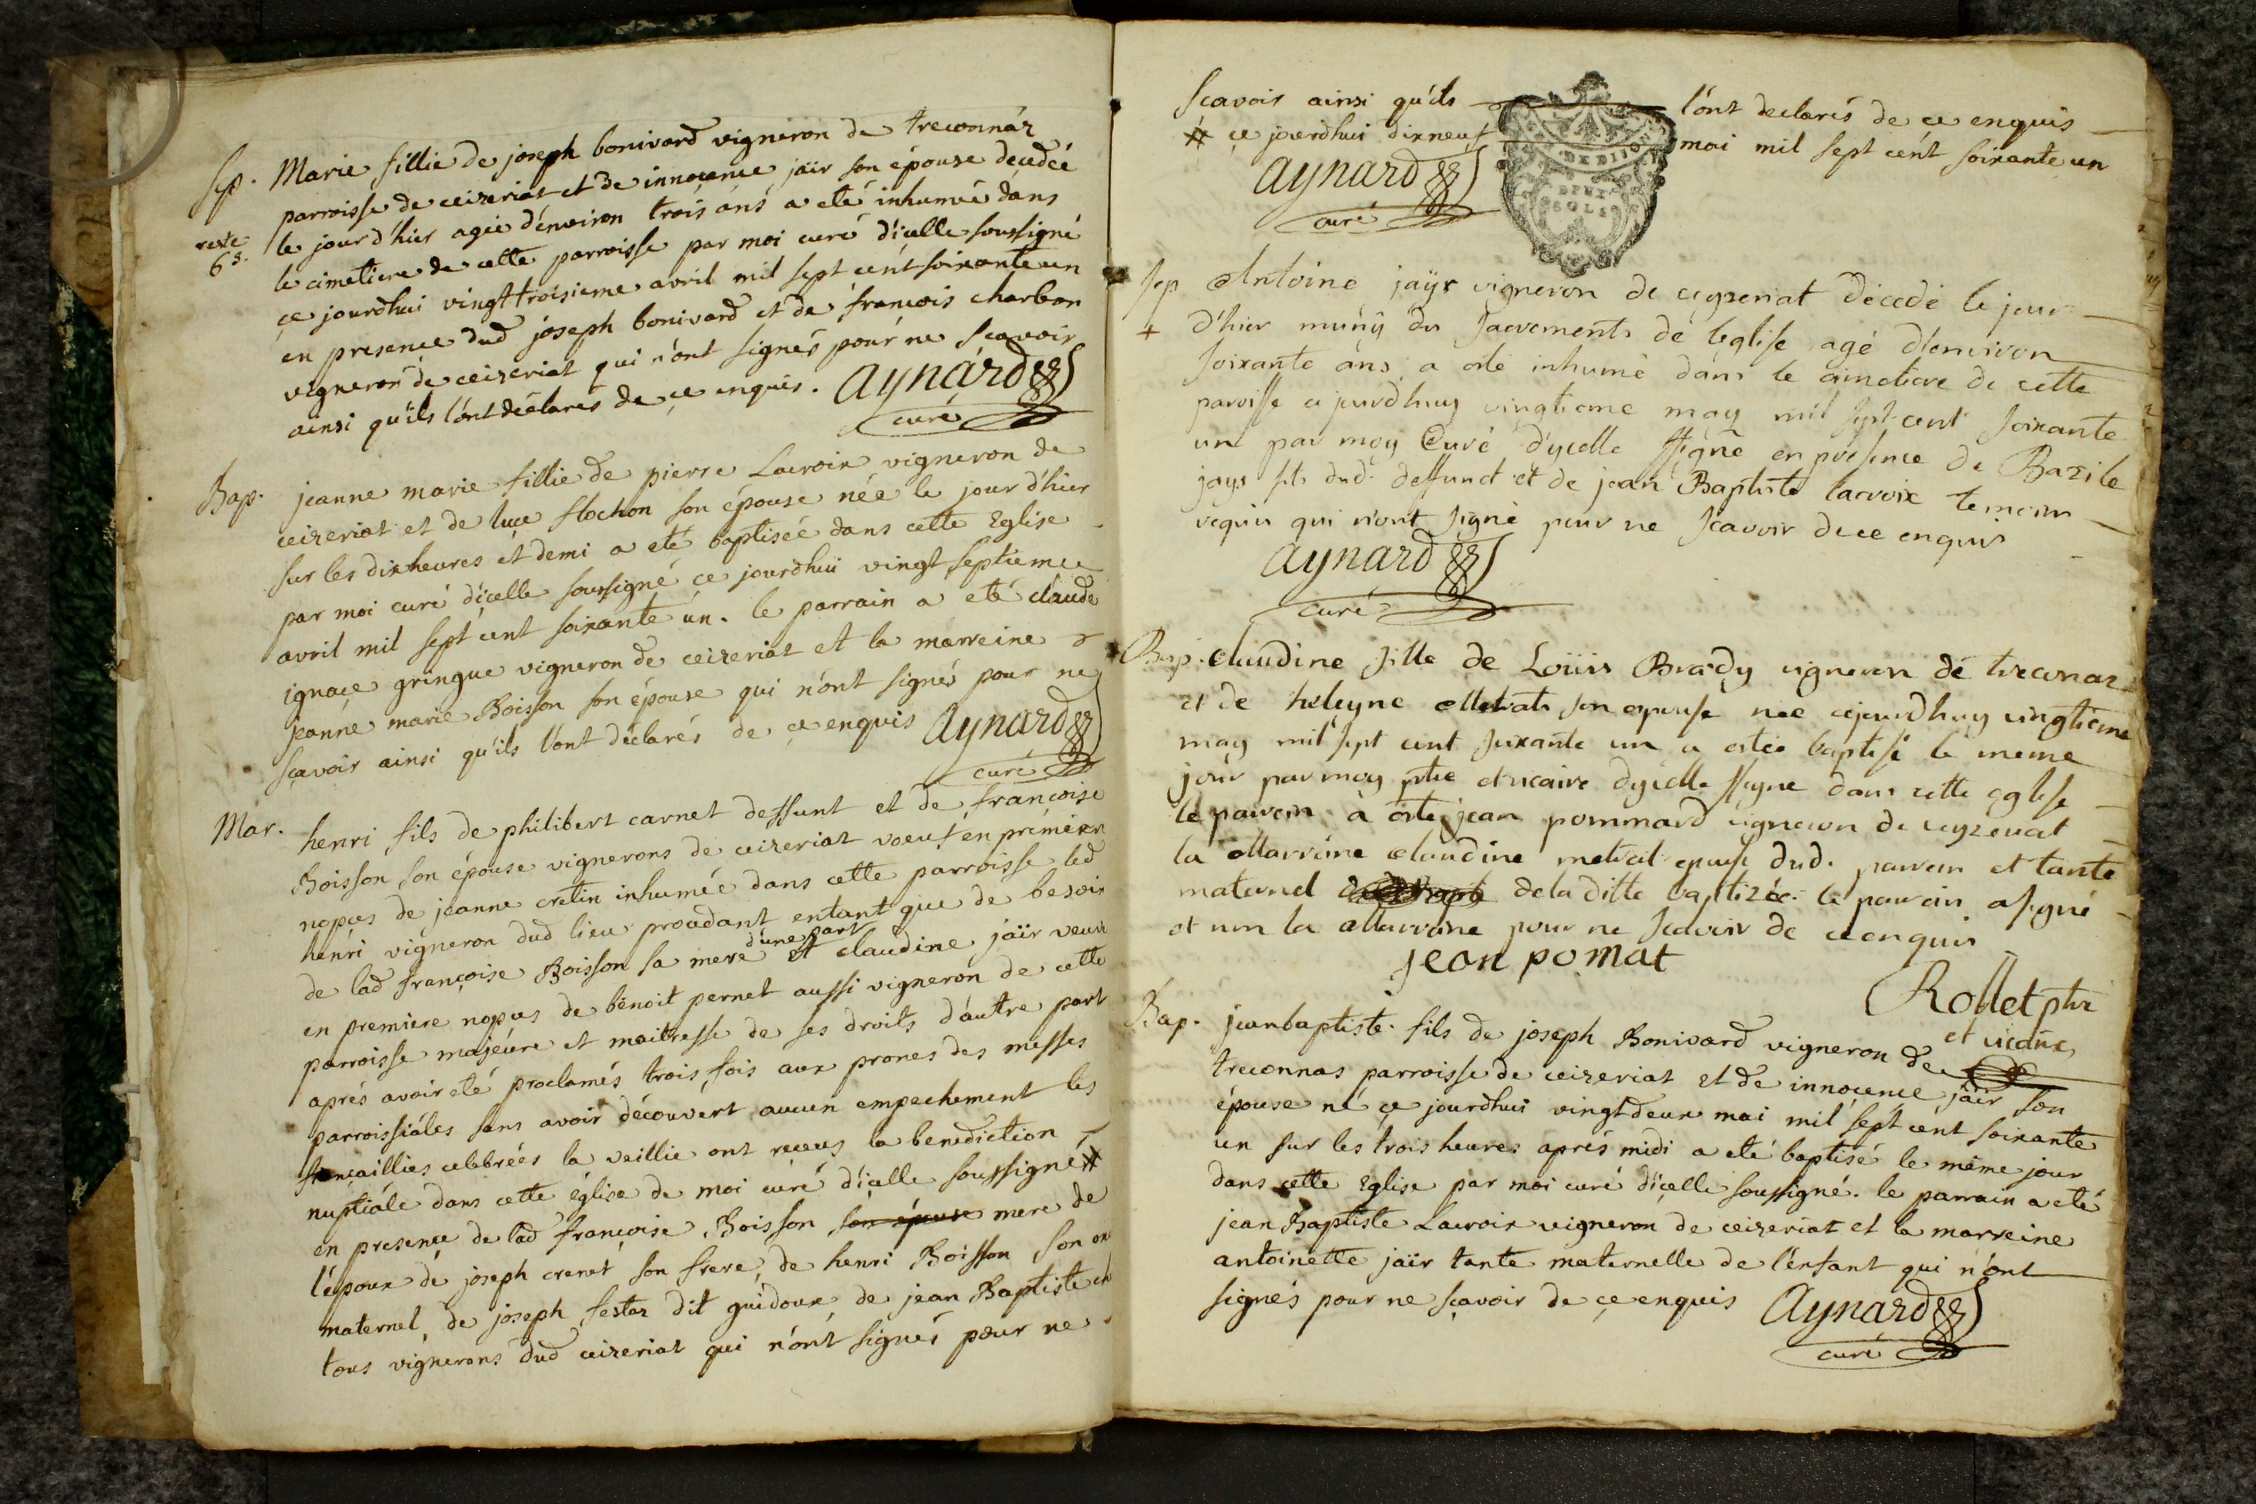 Sep. Marie fillie de joseph bonivard vigneron de treconnáz
parroisse de ceizeriat et de innocence jaïr son épouse decedeé
reste 63. le jour d'hier ageé d'énviron trois áns a eté inhumeé dáns
le cimetiere de cette parroisse par moi curé d'icelle soussigné
ce jourdhui vingt troisieme avril mil sept cent soixante un
en presence dud joseph bonivard et de francois charbon
vigneron de ceizeriat qui n'ont signés pour ne scavoir
ainsi qu'ils l'ónt déclarés de ce enquis. Aynárd
curé
Bap. jeanne marie fillie de pierre Lacroix vigneron de
ceizeriat et de luce flochon son épouse neé le jour d'hier
sur les dix heures et demi a eté baptiseé dans cette Eglise
par moi curé d'icelle soussigné ce jourdhui vingt septieme
avril mil sept cent soixante un. le parrain a eté claude
ignace gringue vigneron de ceizeriat et la marreine
jeanne marie Boisson son épouse qui n'ont signés pour ne
scavoir ainsi qu'ils l'ont déclarés de ce enquis Aynard
curé
Mar. henri fils de philibert carnet deffunt et de françoise
Boisson son épouse vignerons de ceizeriat voeuf en premiere
nopces de jeanne cretin inhumeé dans cette parroisse led
henri vigneron dud lieu procedant entant que de besoin
de lad françoise Boisson sa mere d'une part et claudine jaïr veuve
en premiere nopces de bénoit pernet aussi vigneron de cette
parroisse majeure et maitresse de ses droits d'autre part
aprés avoir eté proclamés trois fois aux prones des messes
parroissiáles sans avoir découvert aucun empechement les
fiançaillies celebreés la veillie ont receus la benediction
nuptiále dans cette église de moi curé d'icelle soussigné #
en presence de lad françoise Boisson son épouse mere de
l'époux de joseph crenet son frere, de henri Boisson son on
maternel, de joseph festaz dit guidoux de jean Baptiste ch
tous vignerons dud ceizeriat qui n'ónt signés pour ne
scavoir ainsi qu'ils l'ónt declarés de ce enquis
# ce jourdhui dix neuf mai mil sept cént soixante un
Aynard
curé
DE DIJON
DEUX
SOLS
Sep Antoine jaÿr vigneron de ceyzeriat décedé le jour
+ d'hier munÿ des sacrements de l'eglise agé d'environ
soixante áns a eté inhumé dans le cimetiere de cette
paroisse ce jourdhuy vingtieme may mil sept cent soixante
un par moy Curé d'ycelle ssigné en présence de Bazile
jayr fils dud. deffunct et de jean Baptiste lacroix temoins
requis qui n'ont signé pour ne scavoir de ce enquis
Aynard
curé
Bap. claudine fille de Loüis Brady vigneron dé treconaz
et de heleyne Metrat son epouse neé cejourdhuy vingtieme
may mil sept cent soixante un a estée baptisé le meme
jour par moy ptre et vicaire dycelle ssigné dans cette eglise
le parrein à esté jean pommard vigneron de ceyzeriat
la Marraine claudine metrat epouse dud. parrein et tante
maternel de la ditte baptizée. le parrein a signé
et non la Marraine pour ne scavoir de ce enquis
jean pomat
Rollet ptre
et vicaire
Bap. jeanbaptiste fils de joseph Bonivard vigneron de
treconnas parroisse de ceizeriat et de innocence jaïr son
épouse né ce jourdhui vingtdeux mai mil sept cent soixante
un sur les trois heures aprés midi a eté baptisé le même jour
dans cette Eglise par moi curé d'icelle soussigné. le parrain a eté
jean Baptiste Lacroix vigneron de ceizeriat et la marreine
antoinette jaïr tante maternelle de l'enfant qui n'ónt
signés pour ne sçavoir de ce enquis Aynard
curé